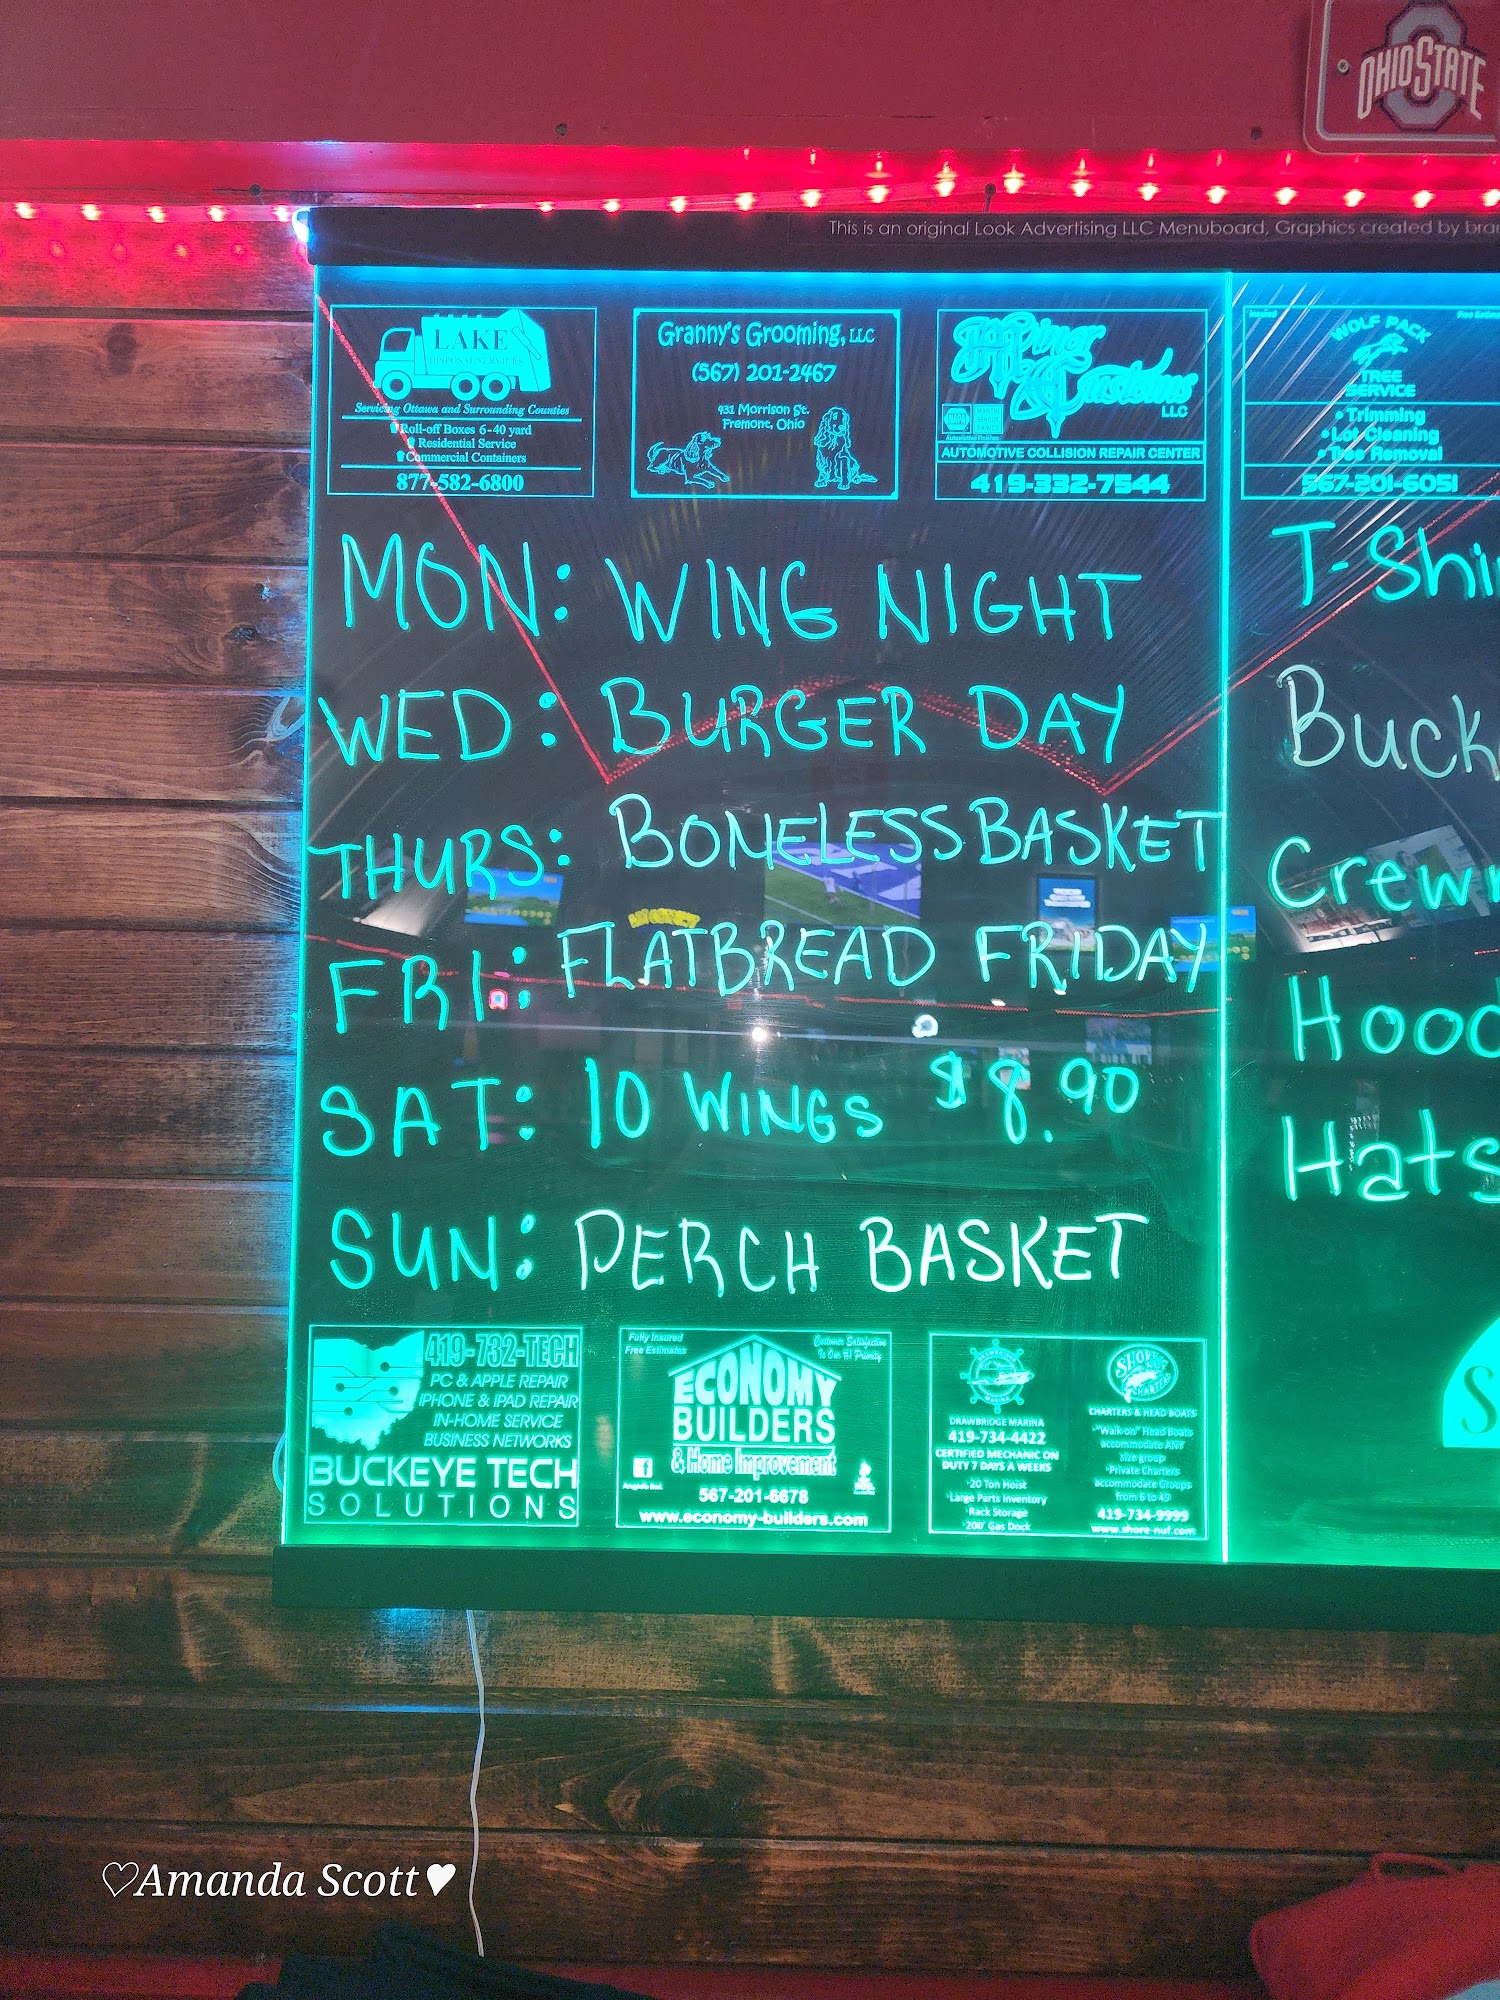 OHIO STATE
This is an original Look Advertising LLC Menuboard, Graphics created by
LAKE
DISPOSAL SERVICES
Servicing Ottawa and Surrounding Counties
Roll-off Boxes 6-40 yard
Residential Service
Commercial Containers
877-582-6800
Granny's Grooming, LLC
(567) 201-2467
431 Morrison St.
Fremont, Ohio
Customs
LLC
NAPA
AUTOMOTIVE COLLISION REPAIR CENTER
419-332-7544
WOLF PACK
TREE
SERVICE
• Trimming
• Lot Cleaning
• Tree Removal
567-201-6051
MON: WING NIGHT
WED: BURGER DAY
THURS: BONELESS BASKET
FRI: FLATBREAD FRIDAY
SAT: 10 WINGS $8.90
SUN: PERCH BASKET
T-Shi
Buck
Crew
Hood
Hats
419-732-TECH
PC & APPLE REPAIR
IPHONE & IPAD REPAIR
IN-HOME SERVICE
BUSINESS NETWORKS
BUCKEYE TECH
SOLUTIONS
Fully Insured
Free Estimates
Customer Satisfaction
Is Our #1 Priority
ECONOMY
BUILDERS
& Home Improvement
567-201-6678
www.economy-builders.com
DRAWBRIDGE MARINA
419-734-4422
CERTIFIED MECHANIC ON
DUTY 7 DAYS A WEEKS
20 Ton Hoist
Large Parts Inventory
Rack Storage
200' Gas Dock
SHORE
NUF
CHARTERS
CHARTERS & HEAD BOATS
"Walk-on" Head Boats
accommodate ANY
size group
Private Charters
accommodate Groups
from 6 to 49
419-734-9999
www.shore-nuf.com
S
♡Amanda Scott♥